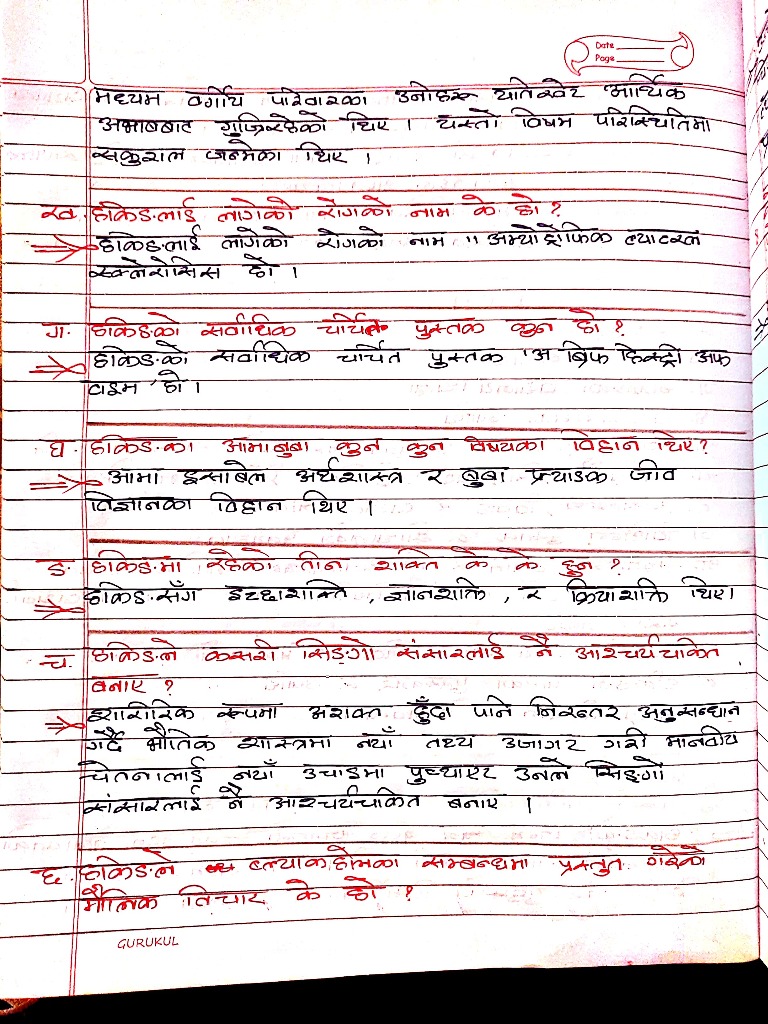 Date
Page
मध्यम वर्गीय परिवारका उनीहरू यतिखेर आर्थिक
अभाबबाट गुज्रिरहेका थिए । यस्तो विषम परिस्थितिमा
सकुशल जन्मेका थिए ।
ख. हकिङलाई लागेको रोगको नाम के हो ?
हकिङलाई लागेको रोगको नाम " अम्योट्रोफिक ल्याटरल
स्क्लेरोसिस हो ।
ग. हकिङको सर्वाधिक चर्चित पुस्तक कुन हो ?
हकिङको सर्वाधिक चर्चित पुस्तक 'अ ब्रिफ हिस्ट्री अफ
टाइम' हो ।
घ. हकिङका आमाबुबा कुन कुन विषयका विद्वान थिए?
आमा इसाबेल अर्थशास्त्र र बुबा फ्र्याङक जीव
विज्ञानका विद्वान थिए ।
ङ. हकिङमा रहेको तीन शक्ति के के हुन ?
हकिङसँग इच्छाशक्ति , ज्ञानशक्ति , र क्रियाशक्ति थिए।
च. हकिङले कसरी सिङ्गो संसारलाई नै आश्चर्यचकित
बनाए ?
शारीरिक रूपमा अशक्त हुँदा पनि निरन्तर अनुसन्धान
गर्दै भौतिक शास्त्रमा नयाँ तथ्य उजागर गरी मानवीय
चेतनालाई नयाँ उचाइमा पुर्‍याएर उनले सिङ्गो
संसारलाई नै आश्चर्यचकित बनाए ।
छ. हकिङले ब्ल्याकहोलका सम्बन्धमा प्रस्तुत गरेको
मौलिक विचार के हो ?
GURUKUL